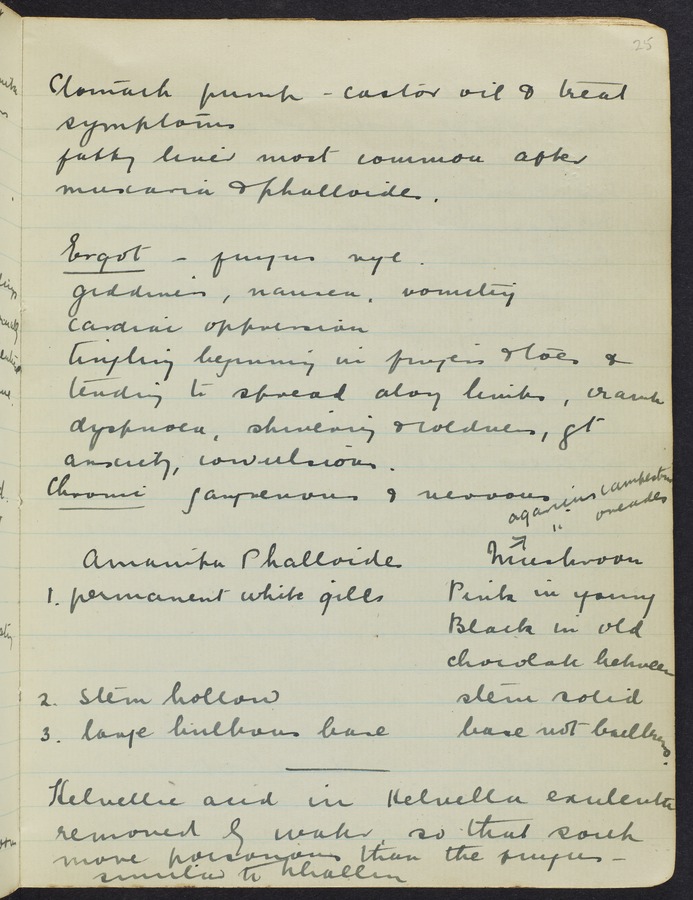 25
Stomach pump - castor oil & treat
symptoms
fatty liver most common after
muscaria & phalloides.
Ergot - fungus rye.
giddiness, nausea, vomiting
cardiac oppression
tingling beginning in fingers & toes &
tending to spread along limbs, cramp
dyspnoea, shivering & coldness, gt
anxiety, convulsions.
Chronic gangrenous & nervous
agaricus campestris
" oreades
Amanita Phalloides Mushroom
1. permanent white gills Pink in young
Black in old
chocolate between
2. Stem hollow stem solid
3. large bulbous base base not bulbous.
Helvellic acid in Helvella esculenta
removed by water, so that soup
more poisonous than the fungus -
similar to phallin